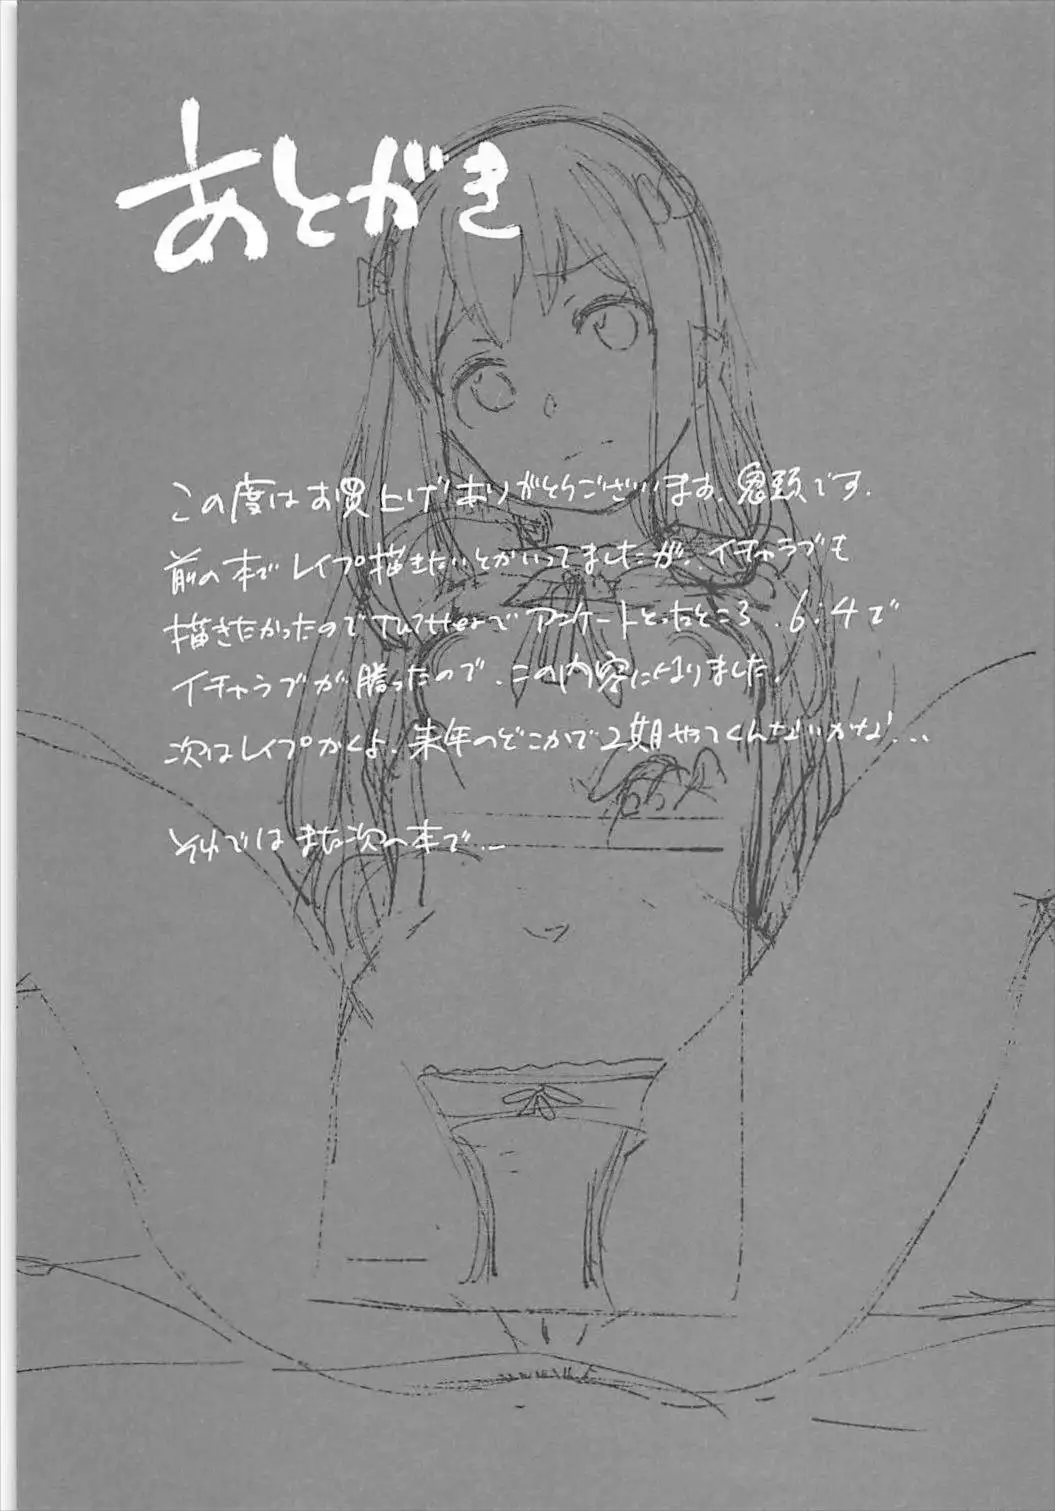 あとがき
この度はお買上げありがとうございます、鬼頭です.
前の本でレイプ描きたいとかいってましたが、イチャラブも
描きたかったのでTwitterでアンケートとったところ、6:4で
イチャラブが勝ったので、この内容になりました.
次はレイプかくよ、来年のどこかで2期やってくんないかな...
それではまた次の本で...